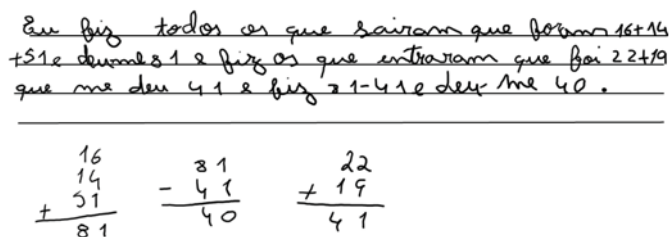 Eu fiz todos os que sairam que foram 16+14
+51 e deu-me 81 e fiz os que entraram que foi 22+19
que me deu 41 e fiz 81-41 e deu-me 40.
16
14
+ 51
81
81
- 41
40
22
+ 19
41